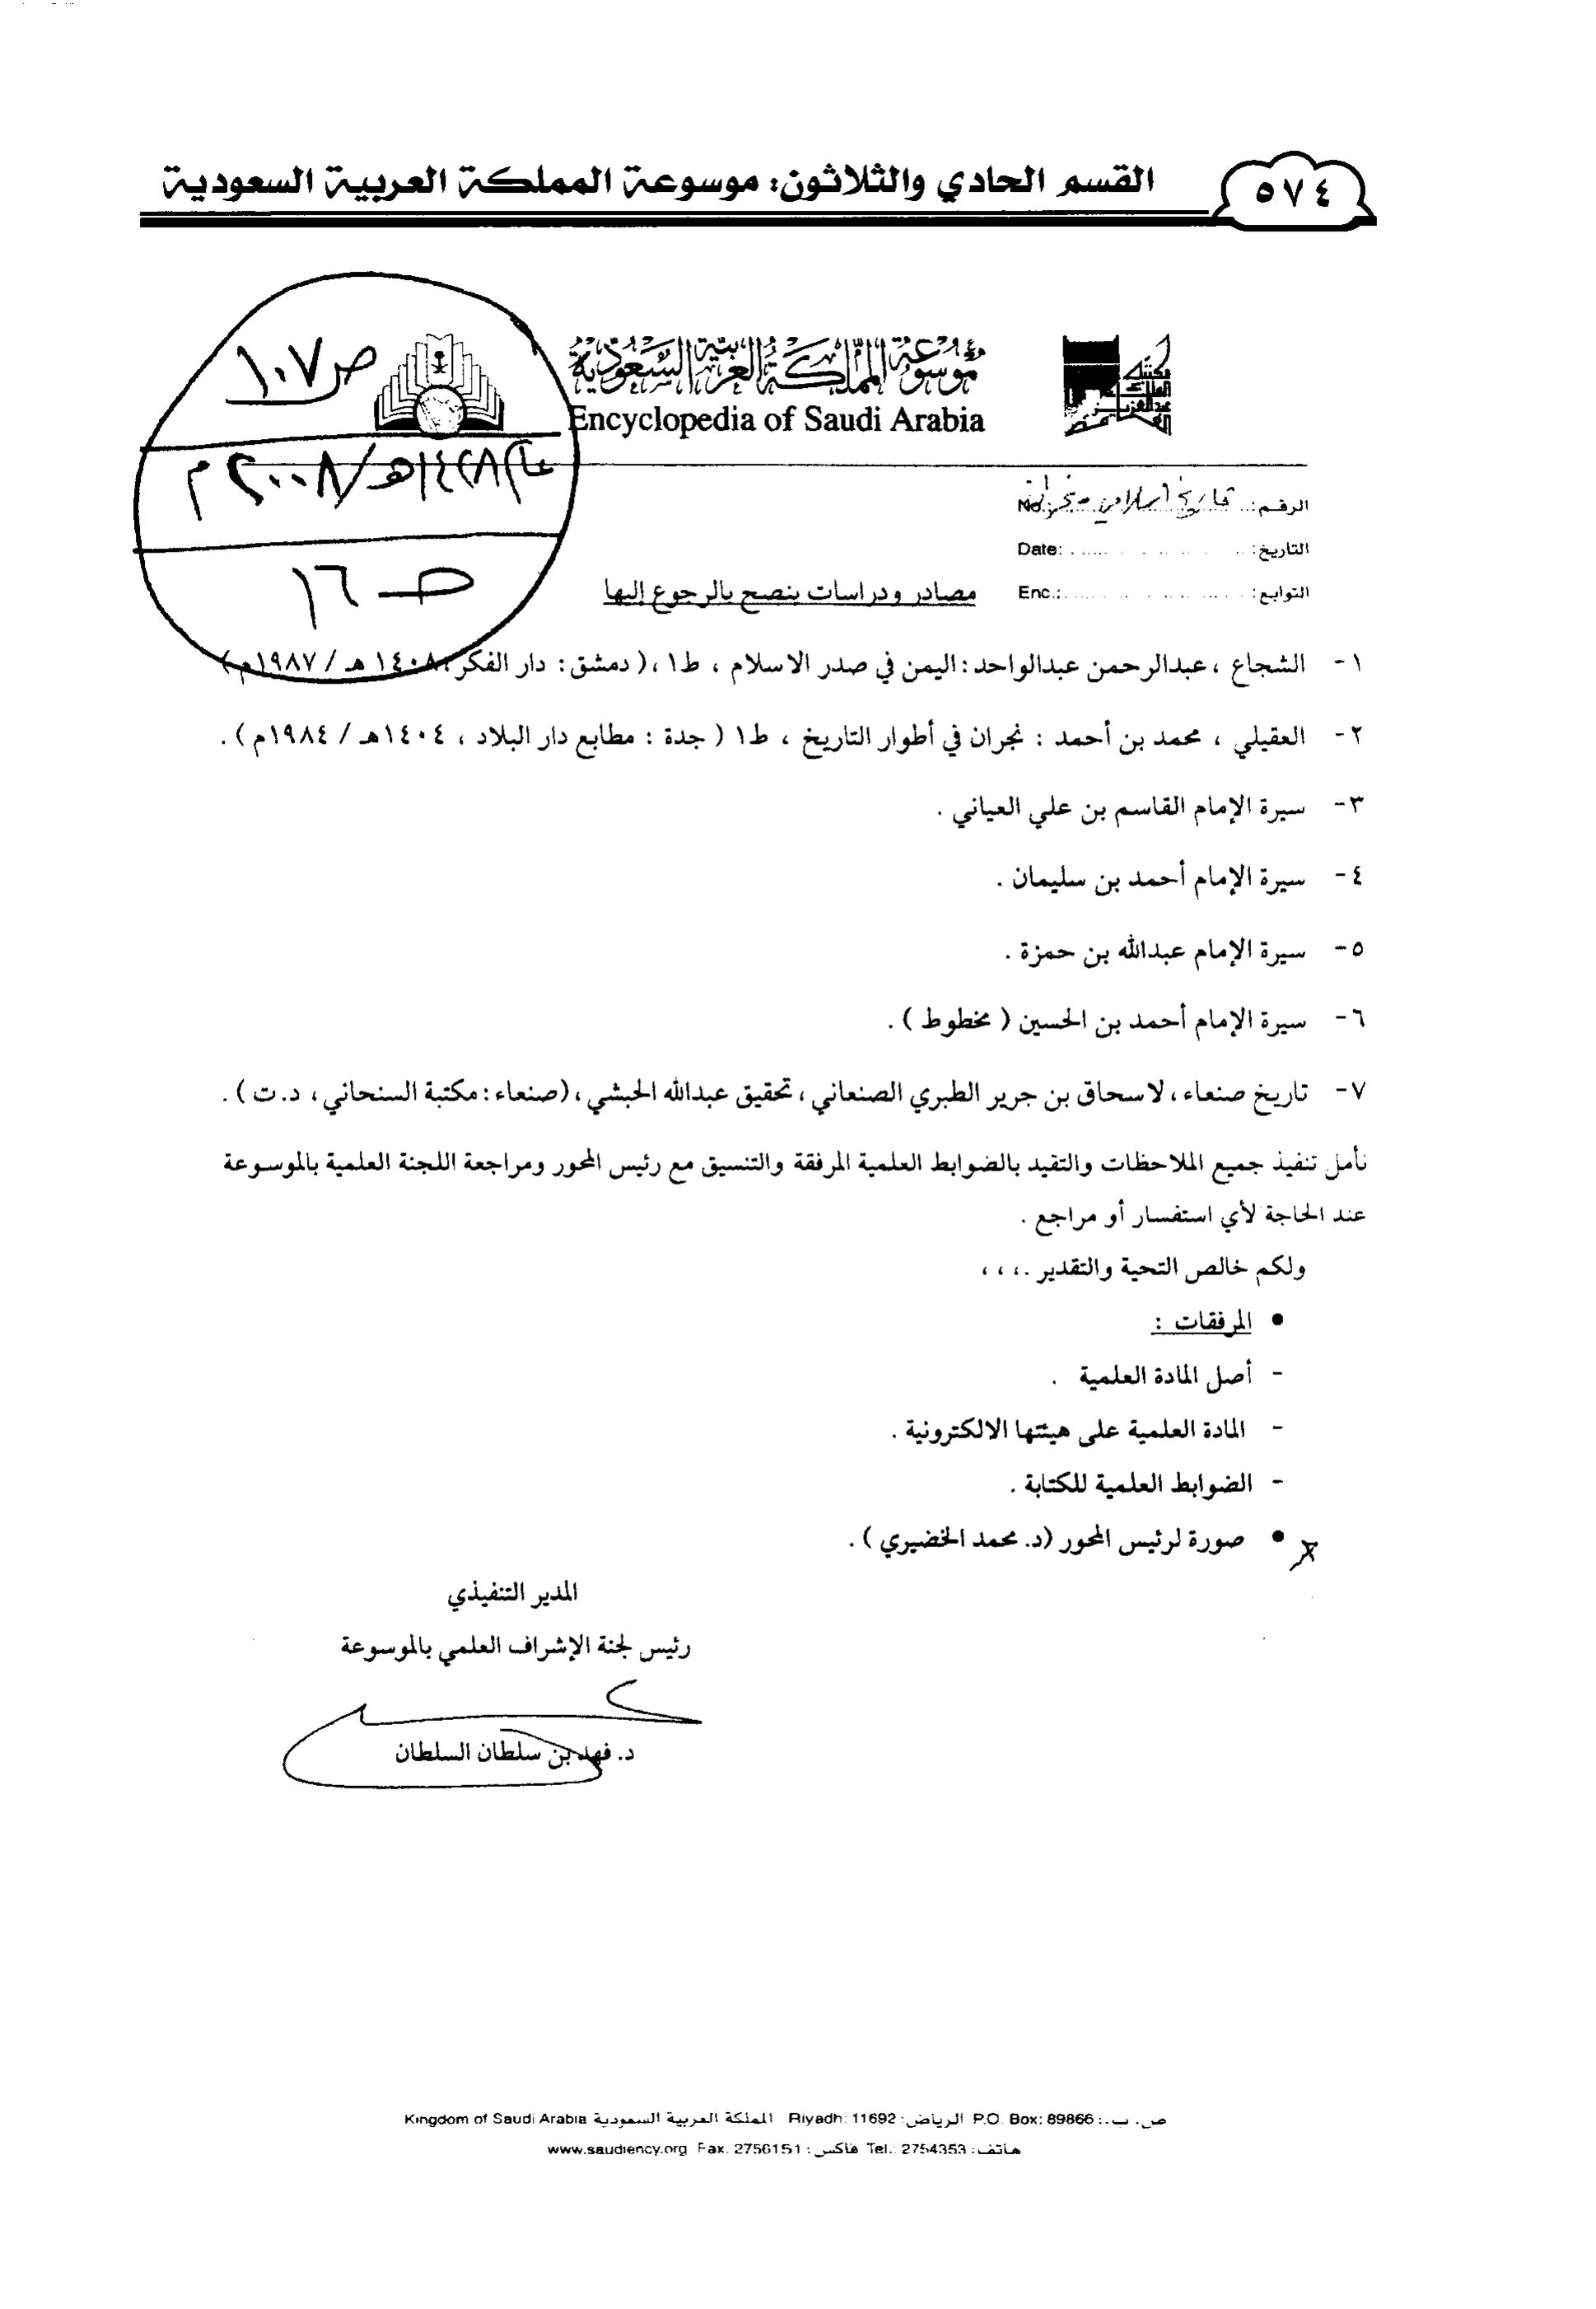 ٥٧٤
القسم الحادي والثلاثون: موسوعة المملكة العربية السعودية
ص١٠٧
عام ١٤٢٨هـ/٢٠٠٨م
ص ١٦
موسوعة المملكة العربية السعودية
Encyclopedia of Saudi Arabia
مكتبة الملك عبدالعزيز العامة
الرقم: تاريخ إسلامي - نجران No.
التاريخ: Date:
التوابع: Enc.:
مصادر ودراسات ينصح بالرجوع إليها
١- الشجاع ، عبدالرحمن عبدالواحد: اليمن في صدر الاسلام ، ط١ ،( دمشق: دار الفكر، ١٤٠٨ هـ / ١٩٨٧م)
٢- العقيلي ، محمد بن أحمد : نجران في أطوار التاريخ ، ط١ ( جدة : مطابع دار البلاد ، ١٤٠٤هـ / ١٩٨٤م ) .
٣- سيرة الإمام القاسم بن علي العياني .
٤- سيرة الإمام أحمد بن سليمان .
٥- سيرة الإمام عبدالله بن حمزة .
٦- سيرة الإمام أحمد بن الحسين ( مخطوط ) .
٧- تاريخ صنعاء ، لاسحاق بن جرير الطبري الصنعاني ، تحقيق عبدالله الحبشي ، (صنعاء : مكتبة السنحاني ، د.ت ) .
نأمل تنفيذ جميع الملاحظات والتقيد بالضوابط العلمية المرفقة والتنسيق مع رئيس المحور ومراجعة اللجنة العلمية بالموسوعة
عند الحاجة لأي استفسار أو مراجع .
ولكم خالص التحية والتقدير .،،،
• المرفقات :
- أصل المادة العلمية .
- المادة العلمية على هيئتها الالكترونية .
- الضوابط العلمية للكتابة .
• صورة لرئيس المحور (د. محمد الخضيري ) .
المدير التنفيذي
رئيس لجنة الإشراف العلمي بالموسوعة
د. فهد بن سلطان السلطان
ص. ب.: P.O. Box: 89866 الرياض: Riyadh: 11692 المملكة العربية السعودية Kingdom of Saudi Arabia
هاتف: Tel.: 2754353 فاكس: Fax. 2756151 www.saudiency.org